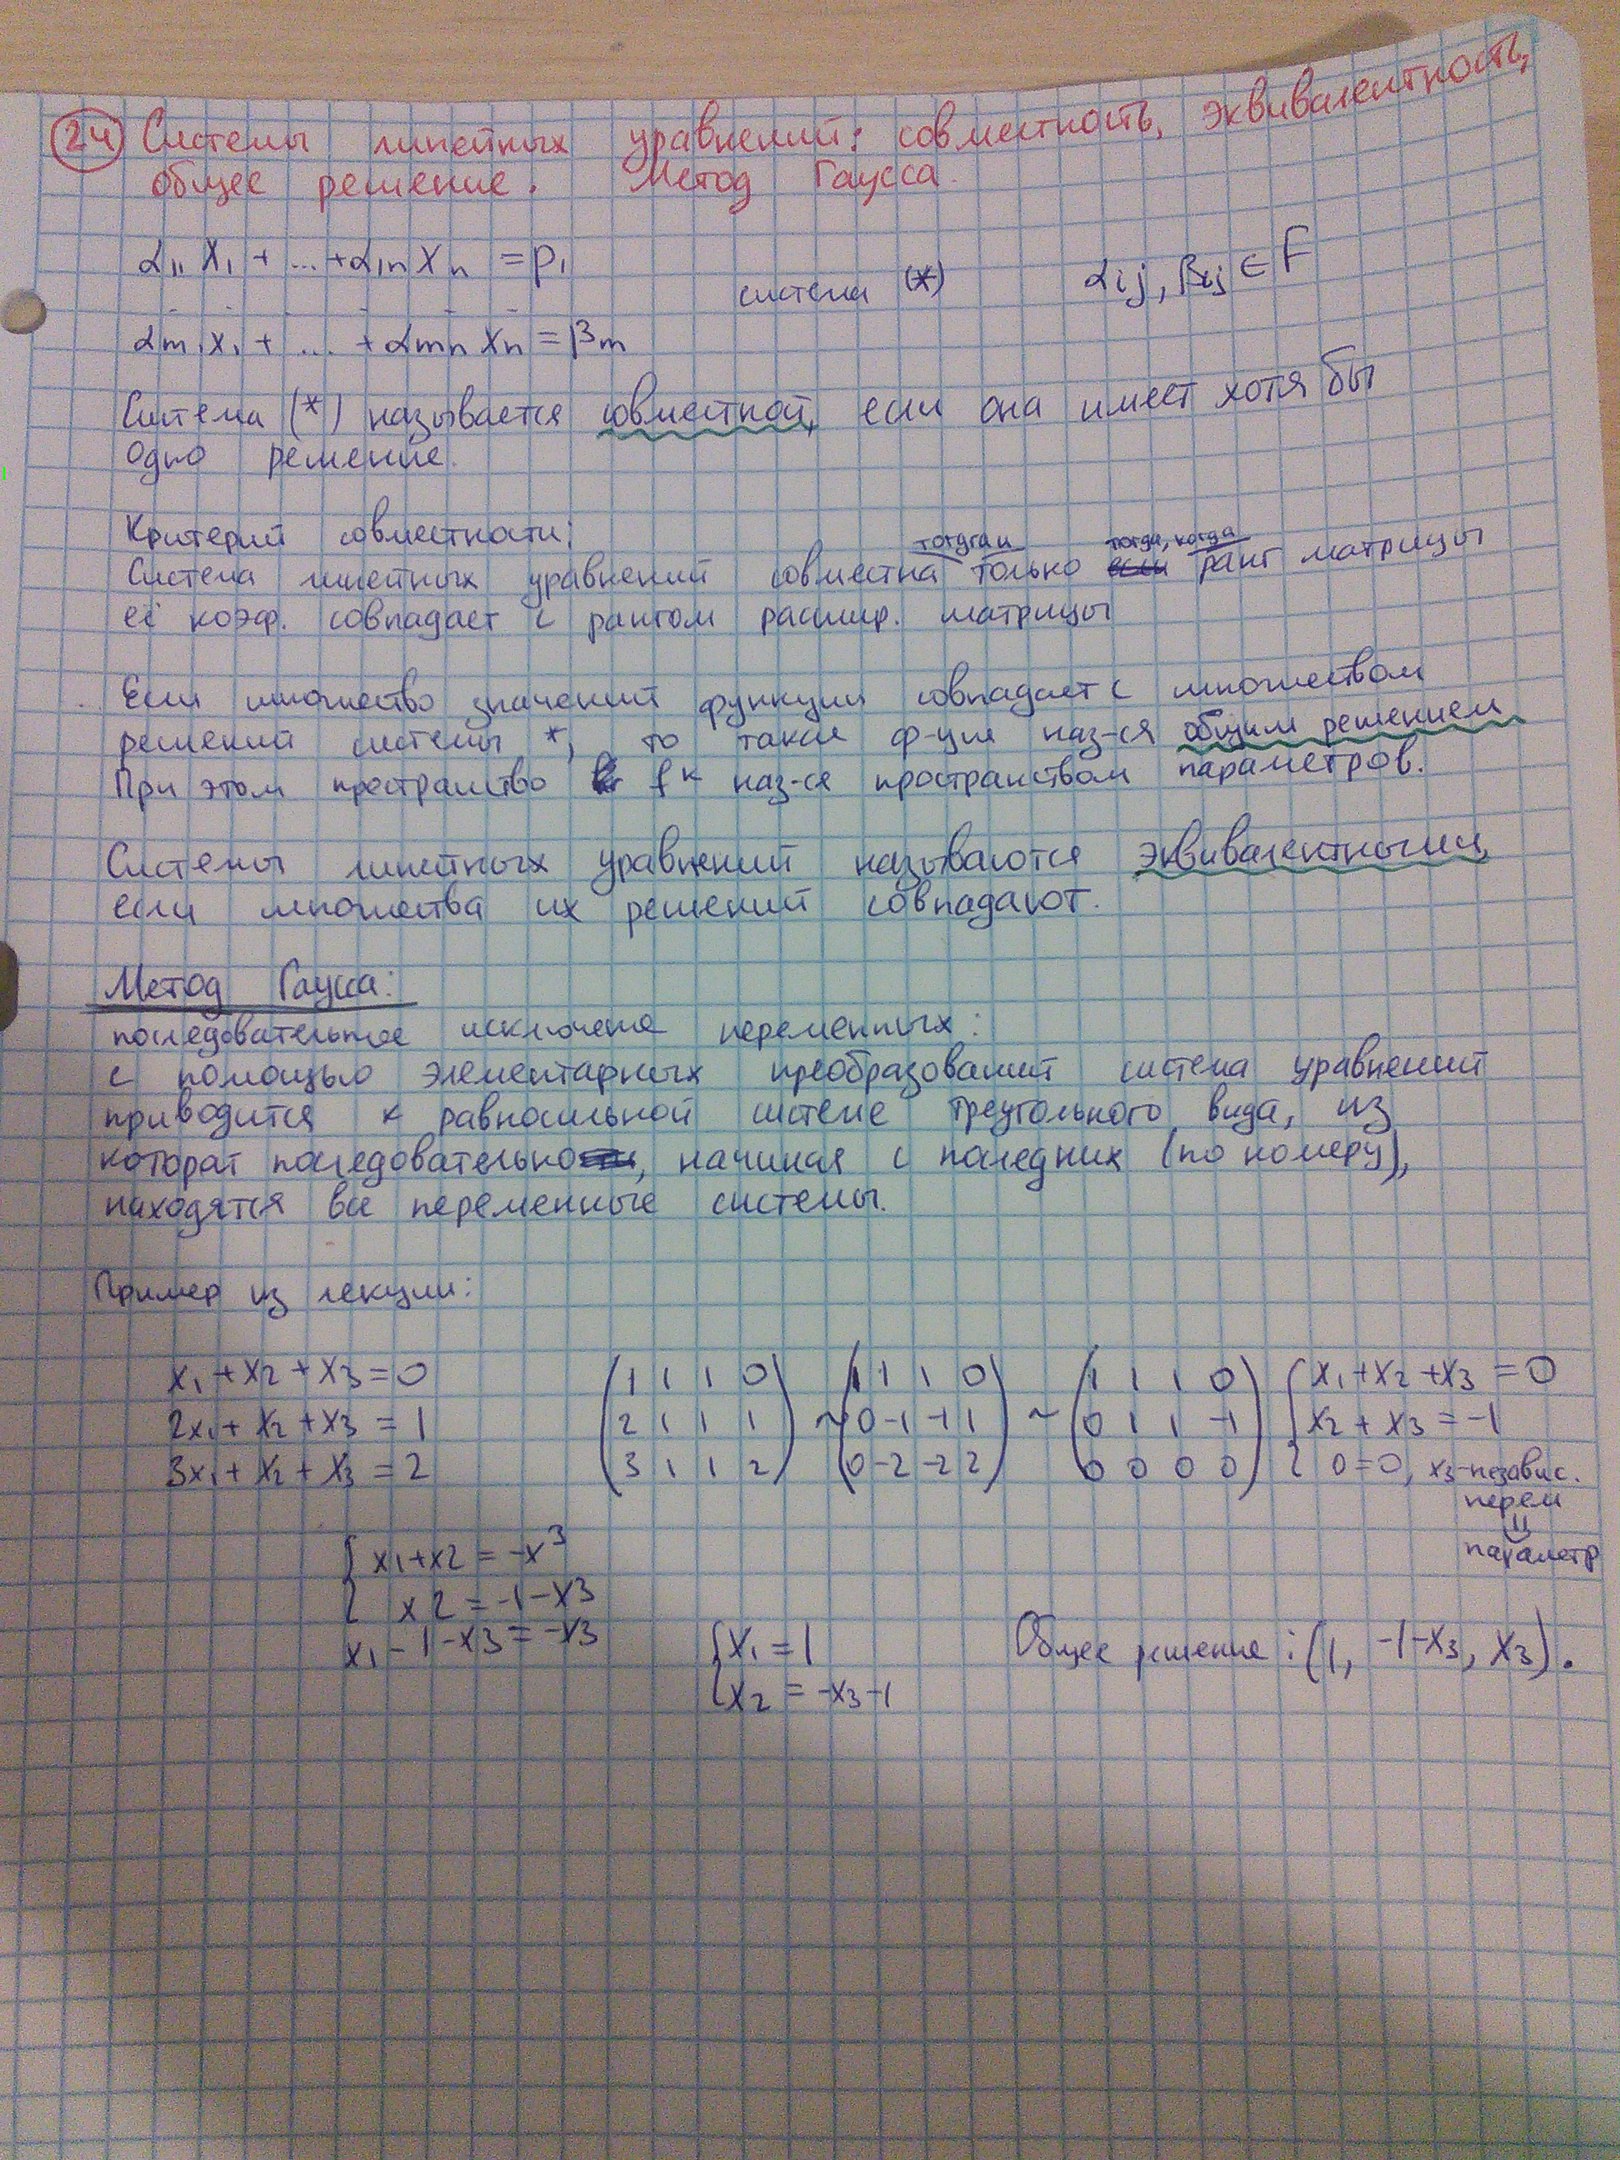 24 Системы линейных уравнений: совместность, эквивалентность,
общее решение. Метод Гаусса.
α₁₁x₁ + ... + α₁ₙxₙ = β₁
система (*) αij, βij ∈ F
αm₁x₁ + ... + αmnxn = βm
Система (*) называется совместной, если она имеет хотя бы
одно решение.
Критерий совместности:
тогда и тогда, когда
Система линейных уравнений совместна только ранг матрицы
её коэф. совпадает с рангом расшир. матрицы
Если множество значений функции совпадает с множеством
решений системы *, то такие ф-ции наз-ся общим решением
При этом пространство fᵏ наз-ся пространством параметров.
Системы линейных уравнений называются эквивалентными,
если множества их решений совпадают.
Метод Гаусса:
последовательное исключение переменных:
с помощью элементарных преобразований система уравнений
приводится к равносильной системе треугольного вида, из
которой последовательно, начиная с последних (по номеру),
находятся все переменные системы.
Пример из лекции:
x₁ + x₂ + x₃ = 0 (1 1 1 0) (1 1 1 0) (1 1 1 0) { x₁ + x₂ + x₃ = 0
2x₁ + x₂ + x₃ = 1 (2 1 1 1) ~ (0 -1 -1 1) ~ (0 1 1 -1) { x₂ + x₃ = -1
3x₁ + x₂ + x₃ = 2 (3 1 1 2) (0 -2 -2 2) (0 0 0 0) { 0=0, x₃-независ.
перем
параметр
{ x₁+x2 = -x³
{ x2 = -1-x3
x₁ - 1 - x3 = -x3
{ x₁ = 1 Общее решение: (1, -1-x₃, x₃).
{ x₂ = -x₃-1